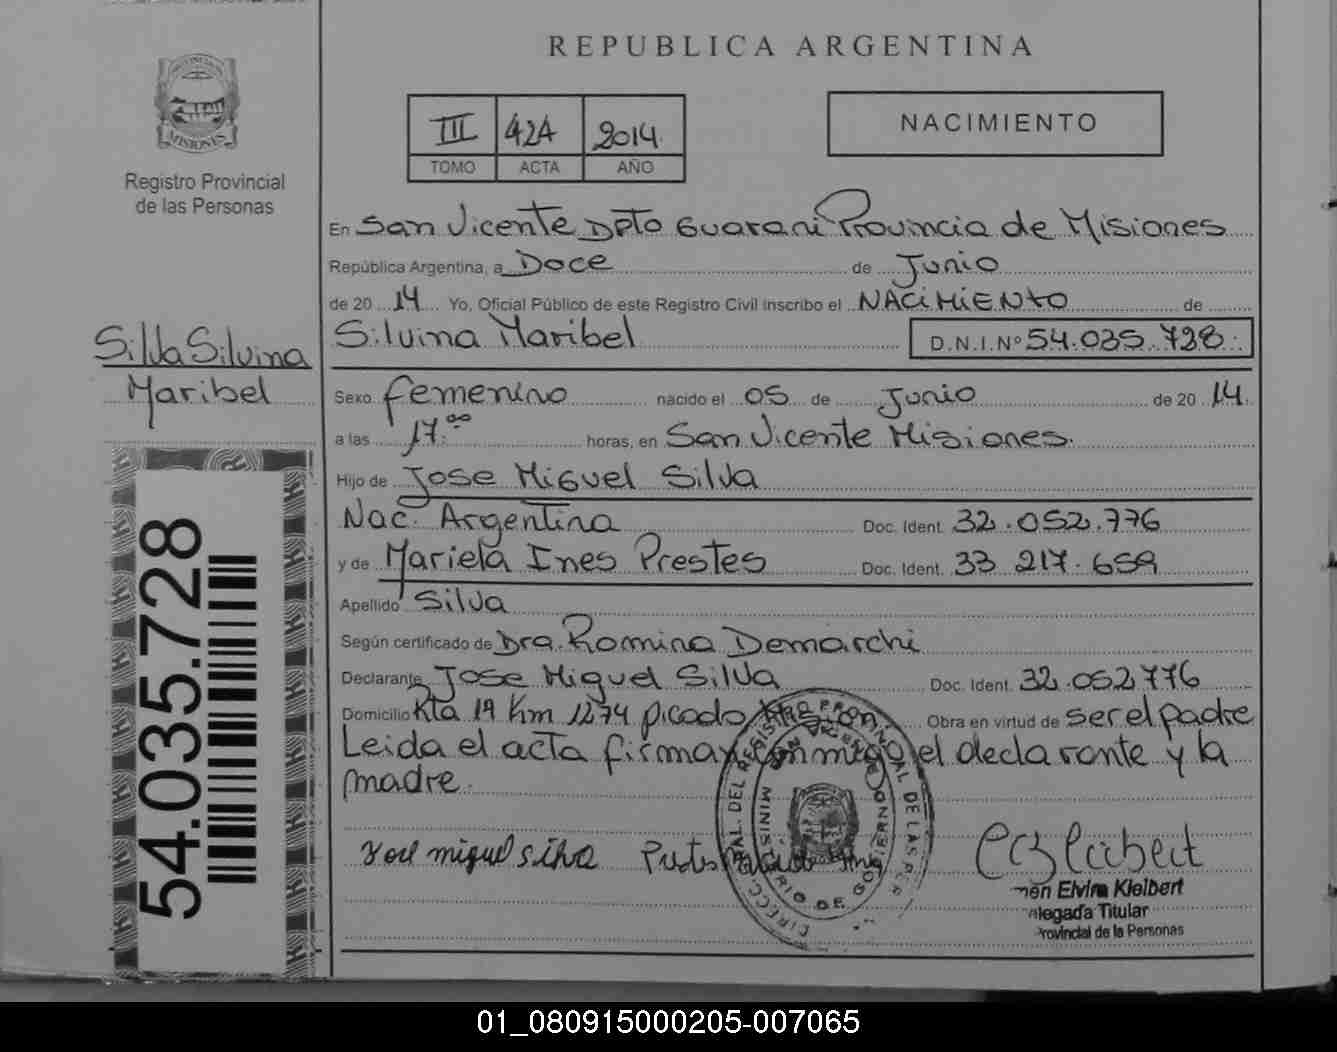 REPUBLICA ARGENTINA
PROVINCIA DE MISIONES
Registro Provincial
de las Personas
III 424 2014
TOMO ACTA AÑO
NACIMIENTO
En San Vicente Dpto Guarani Provincia de Misiones
República Argentina, a Doce de Junio
de 20 14 Yo, Oficial Público de este Registro Civil inscribo el NACIMIENTO de
Silvina Maribel D.N.I.Nº 54.035.728
Silva Silvina
Maribel
Sexo femenino nacido el 05 de Junio de 20 14
a las 17.00 horas, en San Vicente Misiones.
Hijo de Jose Miguel Silva
Nac. Argentina Doc. Ident. 32.052.776
y de Mariela Ines Prestes Doc. Ident. 33 217.659
Apellido Silva
Según certificado de Dra. Romina Demarchi
Declarante Jose Miguel Silva Doc. Ident. 32.052776
Domicilio Kta 19 Km 1274 picado Obra en virtud de ser el padre
Leida el acta firman conmigo el declarante y la
madre.
54.035.728
Jose miguel silva
DIRECC. GRAL. DEL REGISTRO PROVINCIAL DE LAS PER
MINISTERIO DE GOBIERNO
Elvira Kleibert
Titular
de la Personas
01_080915000205-007065